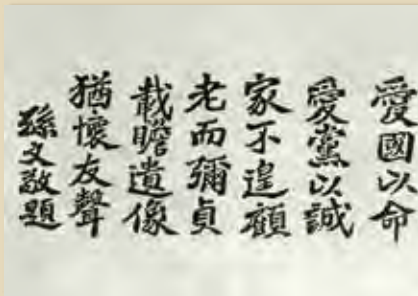 愛國以命
愛黨以誠
家不遑顧
老而彌貞
載瞻遺像
猶懷友聲
孫文敬題